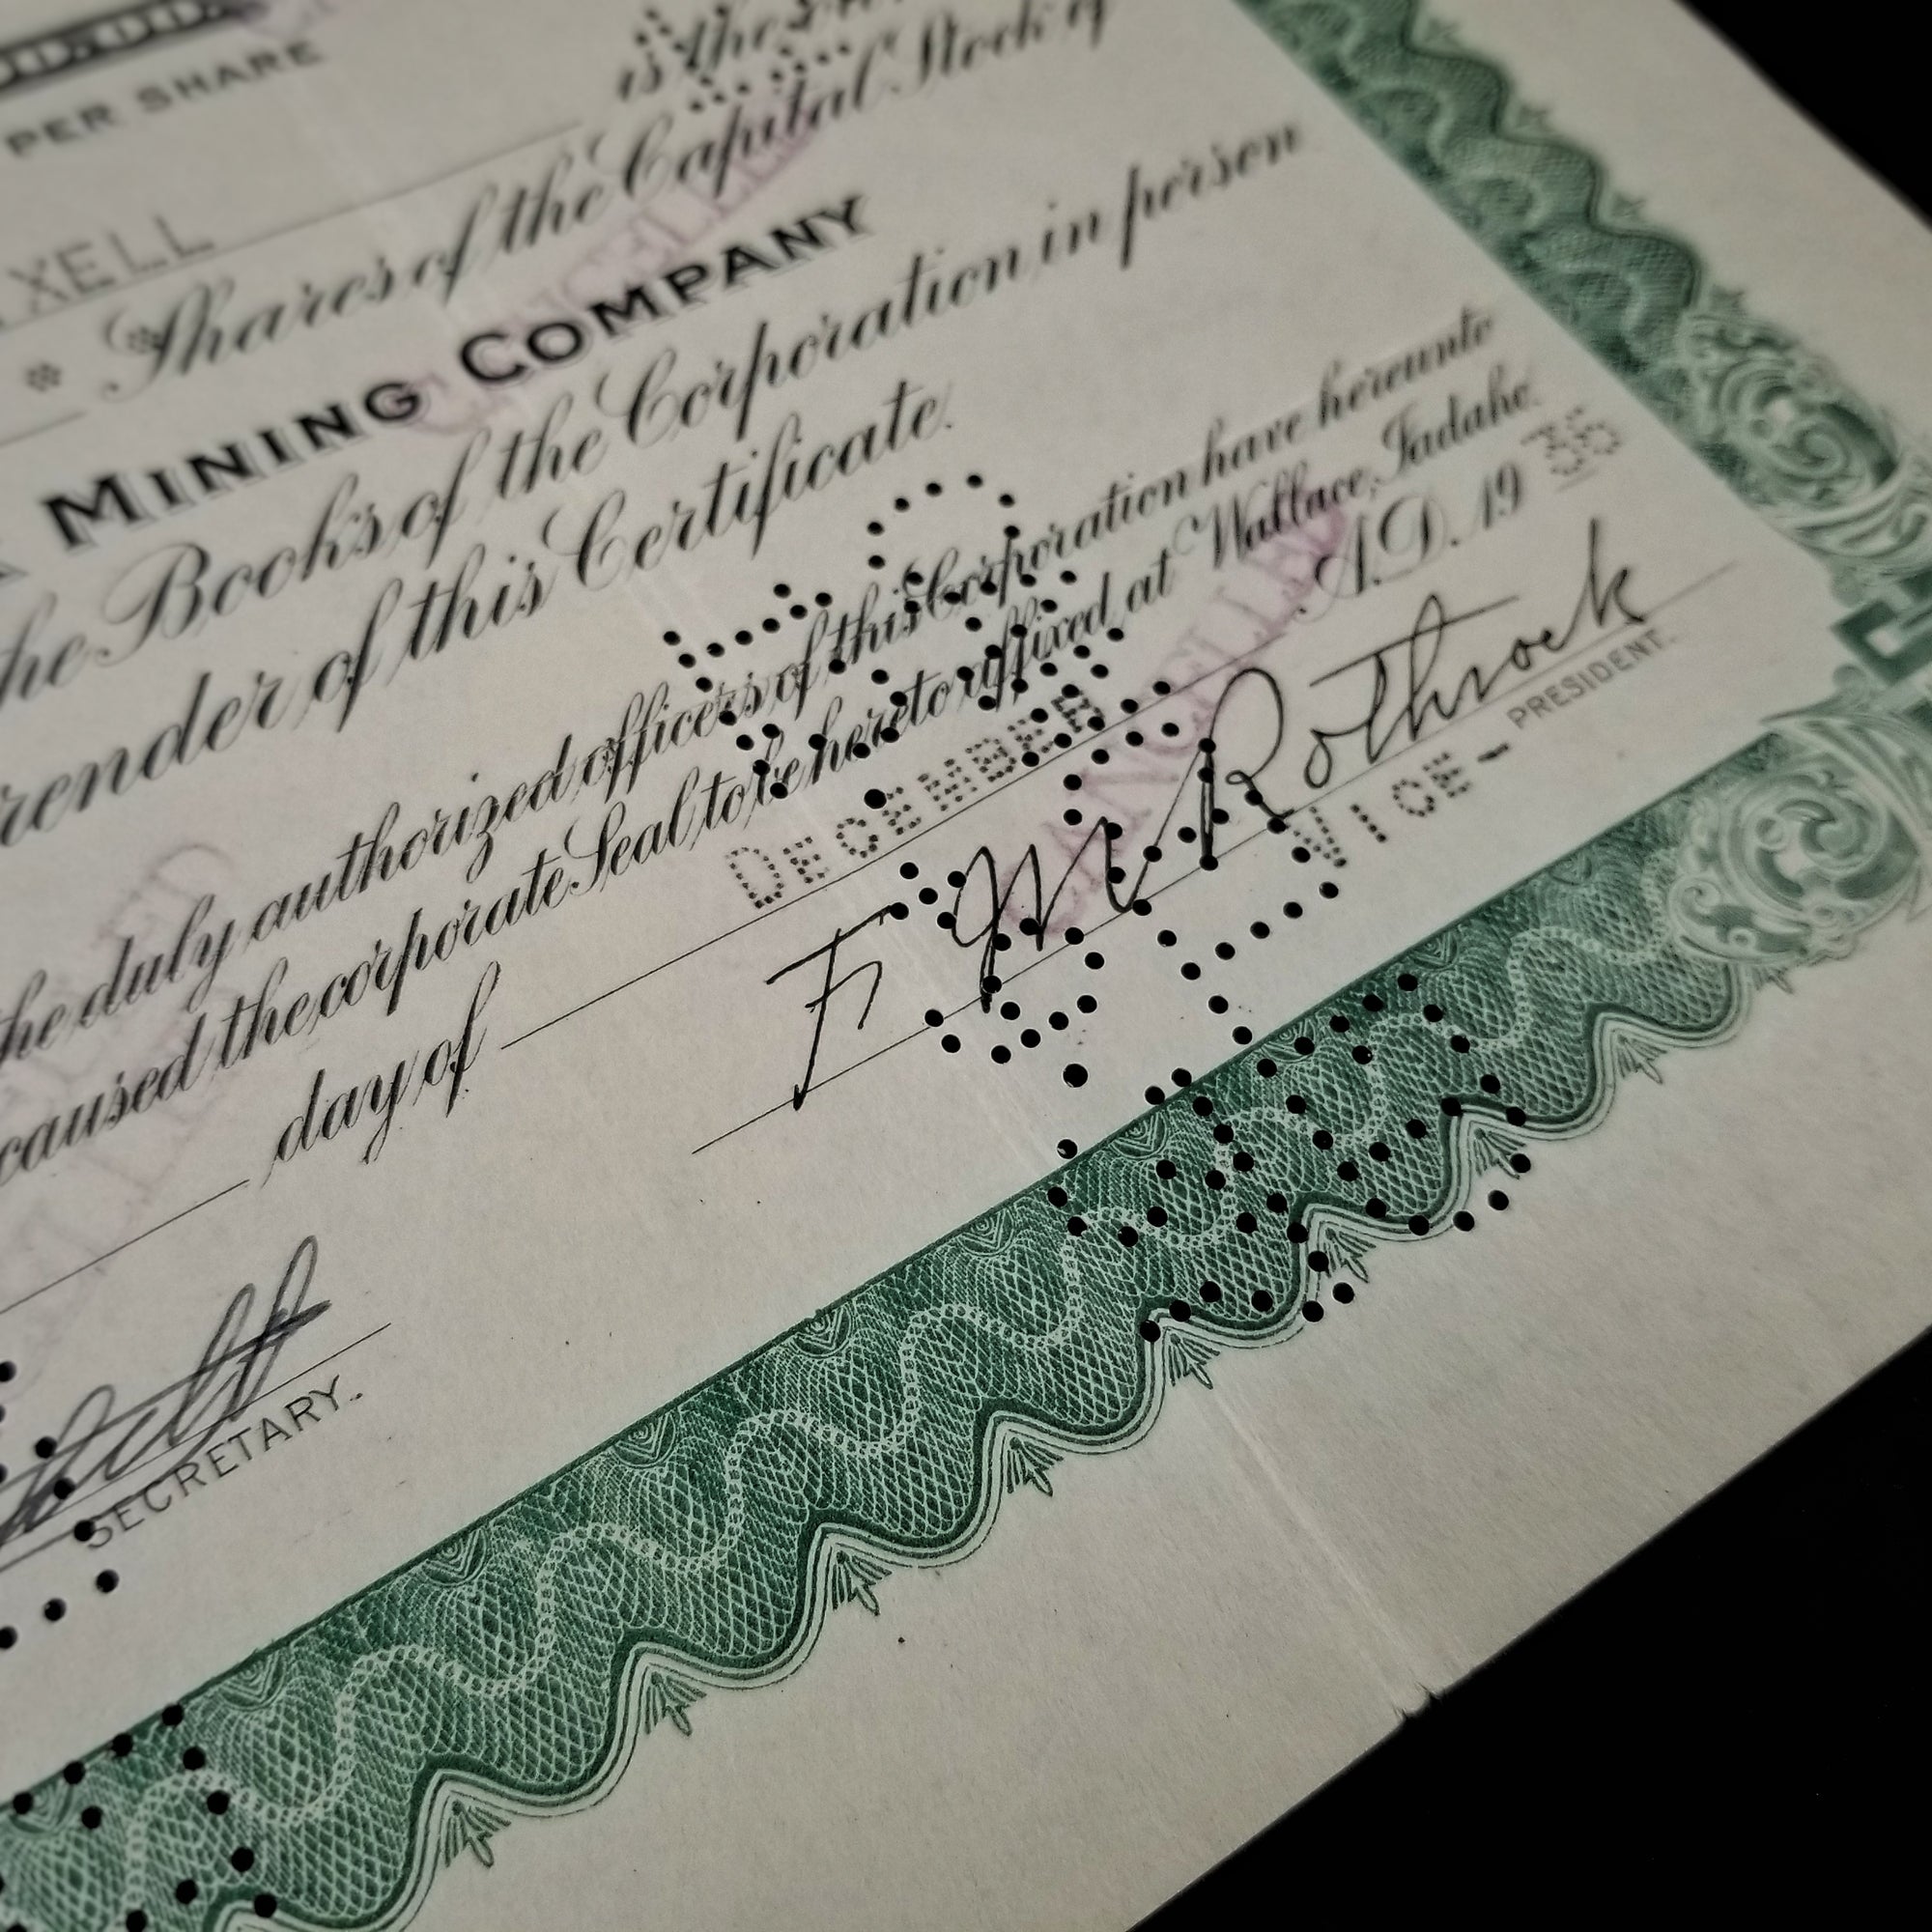 PER SHARE
is the
XELL
* Shares of the Capital Stock of
MINING COMPANY
he Books of the Corporation in person
render of this Certificate.
he duly authorized officers of this Corporation have hereunto
caused the corporate Seal to be hereto affixed at Wallace, Iadaho.
day of DECEMBER A.D. 19 35
F M Rothrock
VICE - PRESIDENT.
SECRETARY.
CANCELLED